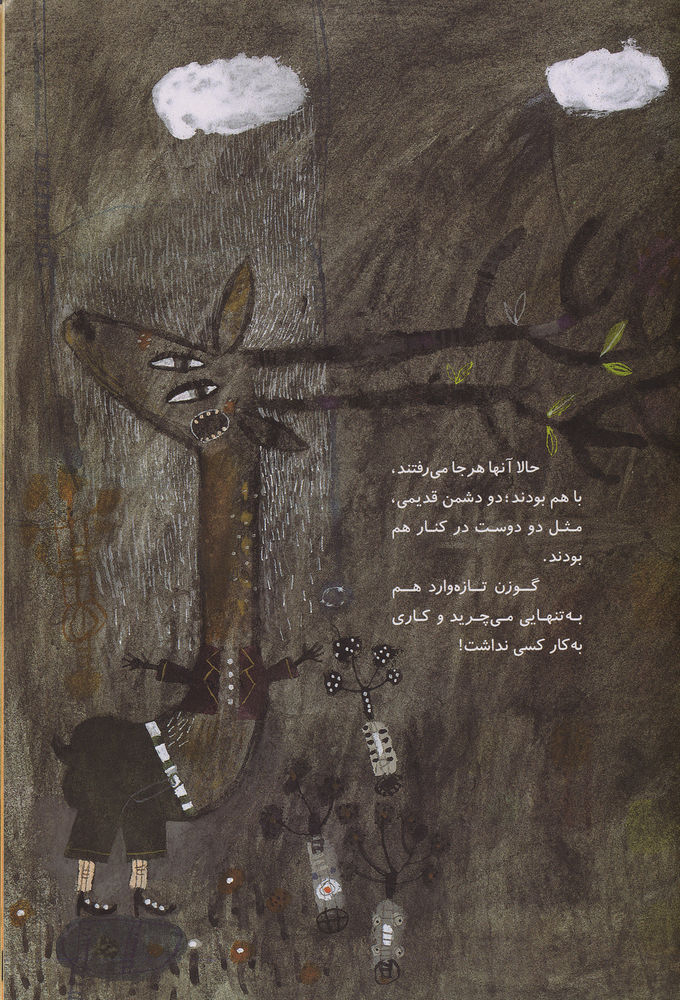 حالا آنها هرجا می‌رفتند،
با هم بودند؛ دو دشمن قدیمی،
مثل دو دوست در کنار هم
بودند.
گوزن تازه‌وارد هم
به‌تنهایی می‌چرید و کاری
به‌کار کسی نداشت!